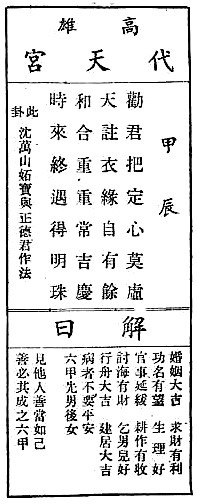 高雄
代天宮
甲辰
勸君把定心莫虛
天註衣緣自有餘
和合重重常吉慶
時來終遇得明珠
此卦 沈萬山妬寶與正德君作法
解曰
婚姻大吉 求財有利
功名有望 生理好
官事延緩 耕作有收
討海有財 乞男兒好
行舟大吉 建居大吉
病者不要平安
六甲先男後女
見他人善當如己
善必其成之六甲